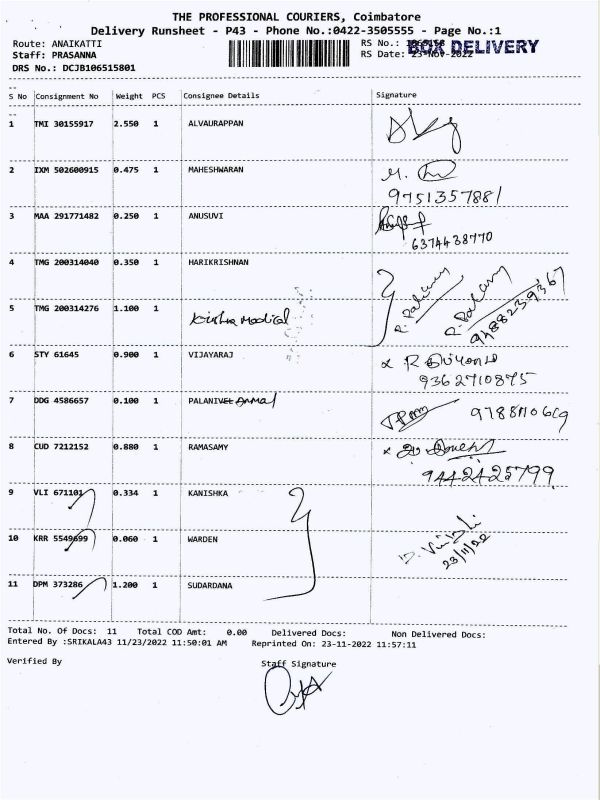 THE PROFESSIONAL COURIERS, Coimbatore
Delivery Runsheet - P43 - Phone No.:0422-3505555 - Page No.:1
Route: ANAIKATTI RS No.:
BOX DELIVERY
Staff: PRASANNA RS Date: 23-Nov-2022
DRS No.: DCJB106515801
--
S No Consignment No Weight PCS Consignee Details Signature
--
1 TMI 30155917 2.550 1 ALVAURAPPAN
2 IXM 502600915 0.475 1 MAHESHWARAN M.
9751357881
3 MAA 291771482 0.250 1 ANUSUVI
6374438770
4 TMG 200314040 0.350 1 HARIKRISHNAN
5 TMG 200314276 1.100 1 Krishna Medical 9488239367
6 STY 61645 0.900 1 VIJAYARAJ
9362710875
7 DDG 4586657 0.100 1 PALANIVEL Ammal
8 CUD 7212152 0.880 1 RAMASAMY
9442425799
9 VLI 671101 0.334 1 KANISHKA
10 KRR 5549699 0.060 1 WARDEN
23/11/22
11 DPM 373286 1.200 1 SUDARDANA
Total No. Of Docs: 11 Total COD Amt: 0.00 Delivered Docs: Non Delivered Docs:
Entered By :SRIKALA43 11/23/2022 11:50:01 AM Reprinted On: 23-11-2022 11:57:11
Verified By Staff Signature